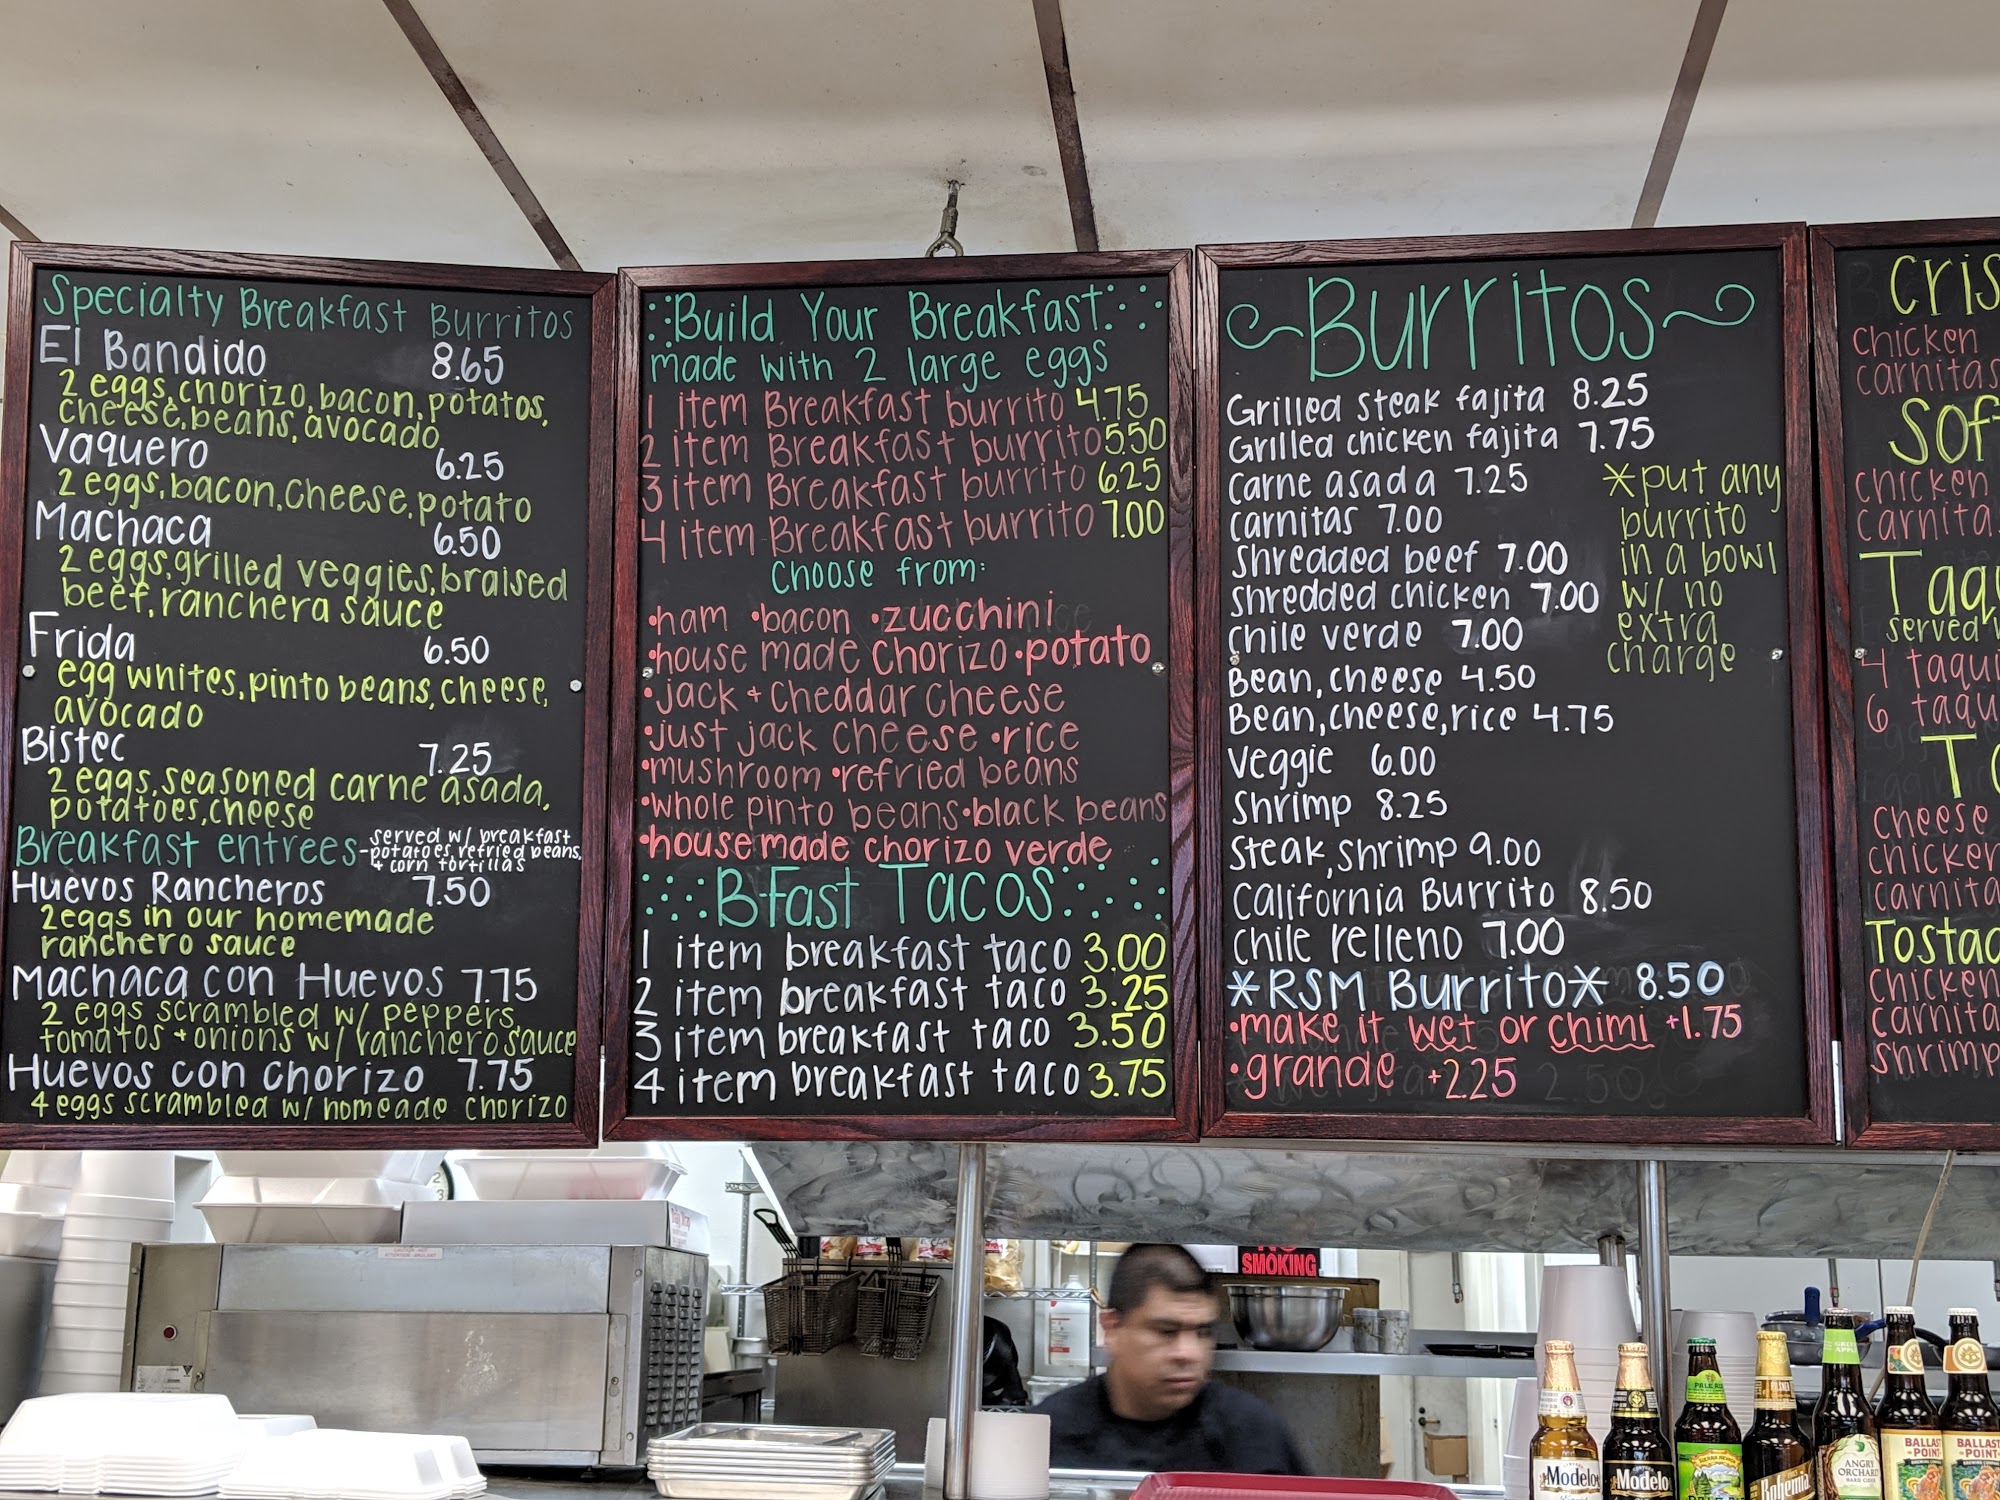 Specialty Breakfast Burritos
El Bandido 8.65
2 eggs, chorizo, bacon, potatos,
cheese, beans, avocado
Vaquero 6.25
2 eggs, bacon, cheese, potato
Machaca 6.50
2 eggs, grilled veggies, braised
beef, ranchera sauce
Frida 6.50
egg whites, pinto beans, cheese,
avocado
Bistec 7.25
2 eggs, seasoned carne asada,
potatoes, cheese
Breakfast entrees - served w/ breakfast
potatoes, refried beans,
+ corn tortillas
Huevos Rancheros 7.50
2 eggs in our homemade
ranchero sauce
Machaca con Huevos 7.75
2 eggs scrambled w/ peppers,
tomatos + onions w/ ranchero sauce
Huevos con chorizo 7.75
4 eggs scrambled w/ homeade chorizo
Build Your Breakfast
made with 2 large eggs
1 item Breakfast burrito 4.75
2 item Breakfast burrito 5.50
3 item Breakfast burrito 6.25
4 item Breakfast burrito 7.00
Choose from:
•ham •bacon •zucchini
•house made chorizo •potato
•jack + cheddar cheese
•just jack cheese •rice
•mushroom •refried beans
•whole pinto beans •black beans
•house made chorizo verde
B-Fast Tacos
1 item breakfast taco 3.00
2 item breakfast taco 3.25
3 item breakfast taco 3.50
4 item breakfast taco 3.75
Burritos
Grilled steak fajita 8.25
Grilled chicken fajita 7.75
carne asada 7.25
carnitas 7.00
shredded beef 7.00
shredded chicken 7.00
chile verde 7.00
Bean, cheese 4.50
Bean, cheese, rice 4.75
veggie 6.00
shrimp 8.25
steak, shrimp 9.00
California Burrito 8.50
chile relleno 7.00
*RSM Burrito* 8.50
•make it wet or chimi +1.75
•grande +2.25
*put any
burrito
in a bowl
w/ no
extra
charge
Cris
chicken
carnitas
Sof
chicken
carnita
Taq
served w
4 taqui
6 taqu
T
cheese
chicken
carnita
Tostad
chicken
carnita
shrimp
NO
SMOKING
Modelo
Modelo
PALE ALE
Bohemia
ANGRY
ORCHARD
HARD CIDER
BALLAST
POINT
BALLAST
POINT